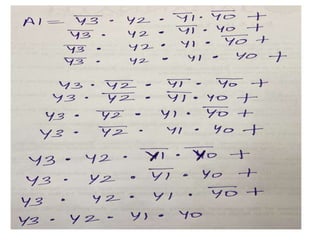 A1 = y̅3̅ · y2 · y̅1̅ · y̅0̅ +
y̅3̅ · y2 · y̅1̅ · y0 +
y̅3̅ · y2 · y1 · y̅0̅ +
y̅3̅ · y2 · y1 · y0 +
y3 · y̅2̅ · y̅1̅ · y̅0̅ +
y3 · y̅2̅ · y̅1̅ · y0 +
y3 · y̅2̅ · y1 · y̅0̅ +
y3 · y̅2̅ · y1 · y0 +
y3 · y2 · y̅1̅ · y̅0̅ +
y3 · y2 · y̅1̅ · y0 +
y3 · y2 · y1 · y̅0̅ +
y3 · y2 · y1 · y0